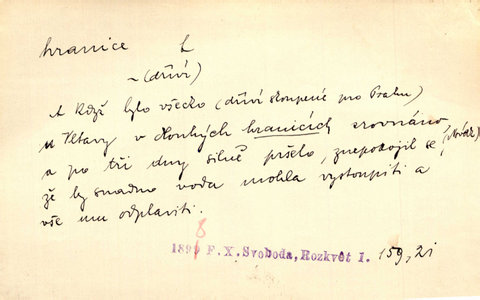 hranice f.
~ (dříví)
A když bylo všecko (dříví skoupené pro Prahu)
u Vltavy v dlouhých hranicích srovnáno
a po tři dny silně pršelo, znepokojil se,
že by snadno voda mohla vystoupiti a
vše mu odplaviti.
1898 F. X. Svoboda, Rozkvět 1. 159, 2i